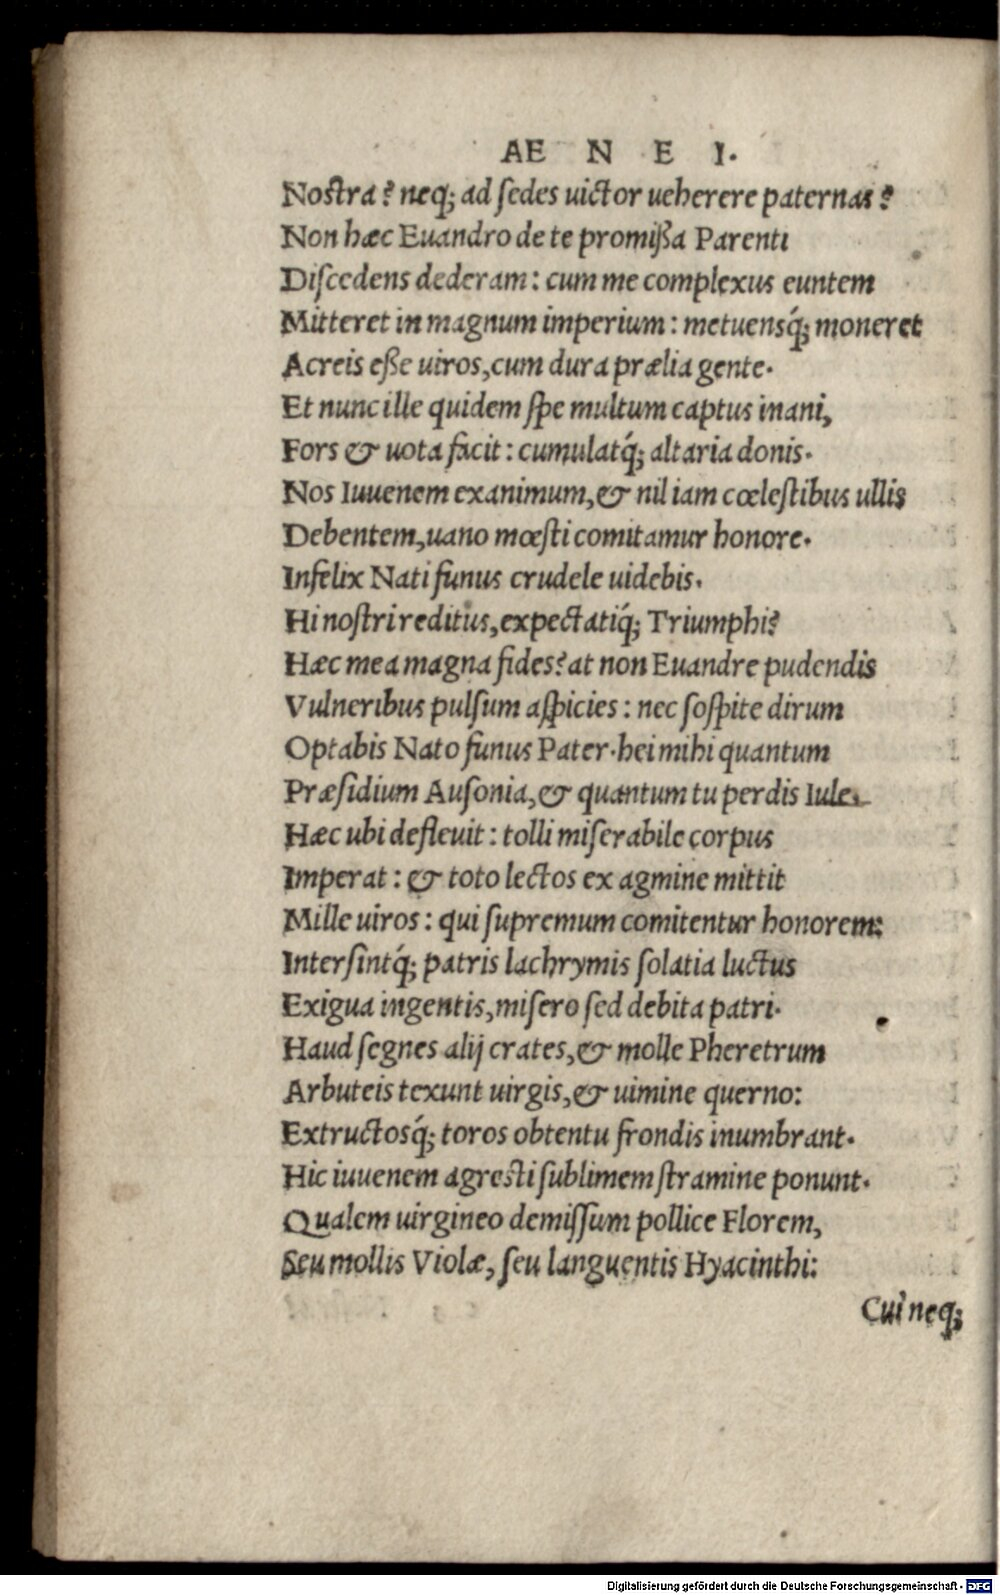 AE N E I.
Nostra? neq; ad sedes uictor ueherere paternas?
Non hæc Euandro de te promißa Parenti
Discedens dederam: cum me complexus euntem
Mitteret in magnum imperium: metuensq́; moneret
Acreis eße uiros, cum dura prælia gente.
Et nunc ille quidem spe multum captus inani,
Fors & uota facit: cumulatq́; altaria donis.
Nos Iuuenem exanimum, & nil iam cœlestibus ullis
Debentem, uano mœsti comitamur honore.
Infelix Nati funus crudele uidebis.
Hi nostri reditus, expectatiq́; Triumphi?
Hæc mea magna fides? at non Euandre pudendis
Vulneribus pulsum aspicies: nec sospite dirum
Optabis Nato funus Pater. hei mihi quantum
Præsidium Ausonia, & quantum tu perdis Iule.
Hæc ubi defleuit: tolli miserabile corpus
Imperat: & toto lectos ex agmine mittit
Mille uiros: qui supremum comitentur honorem:
Intersintq́; patris lachrymis solatia luctus
Exigua ingentis, misero sed debita patri.
Haud segnes alij crates, & molle Pheretrum
Arbuteis texunt uirgis, & uimine querno:
Extructosq́; toros obtentu frondis inumbrant.
Hic iuuenem agresti sublimem stramine ponunt.
Qualem uirgineo demissum pollice Florem,
Seu mollis Violæ, seu languentis Hyacinthi:
Cui neq;
Digitalisierung gefördert durch die Deutsche Forschungsgemeinschaft - DFG